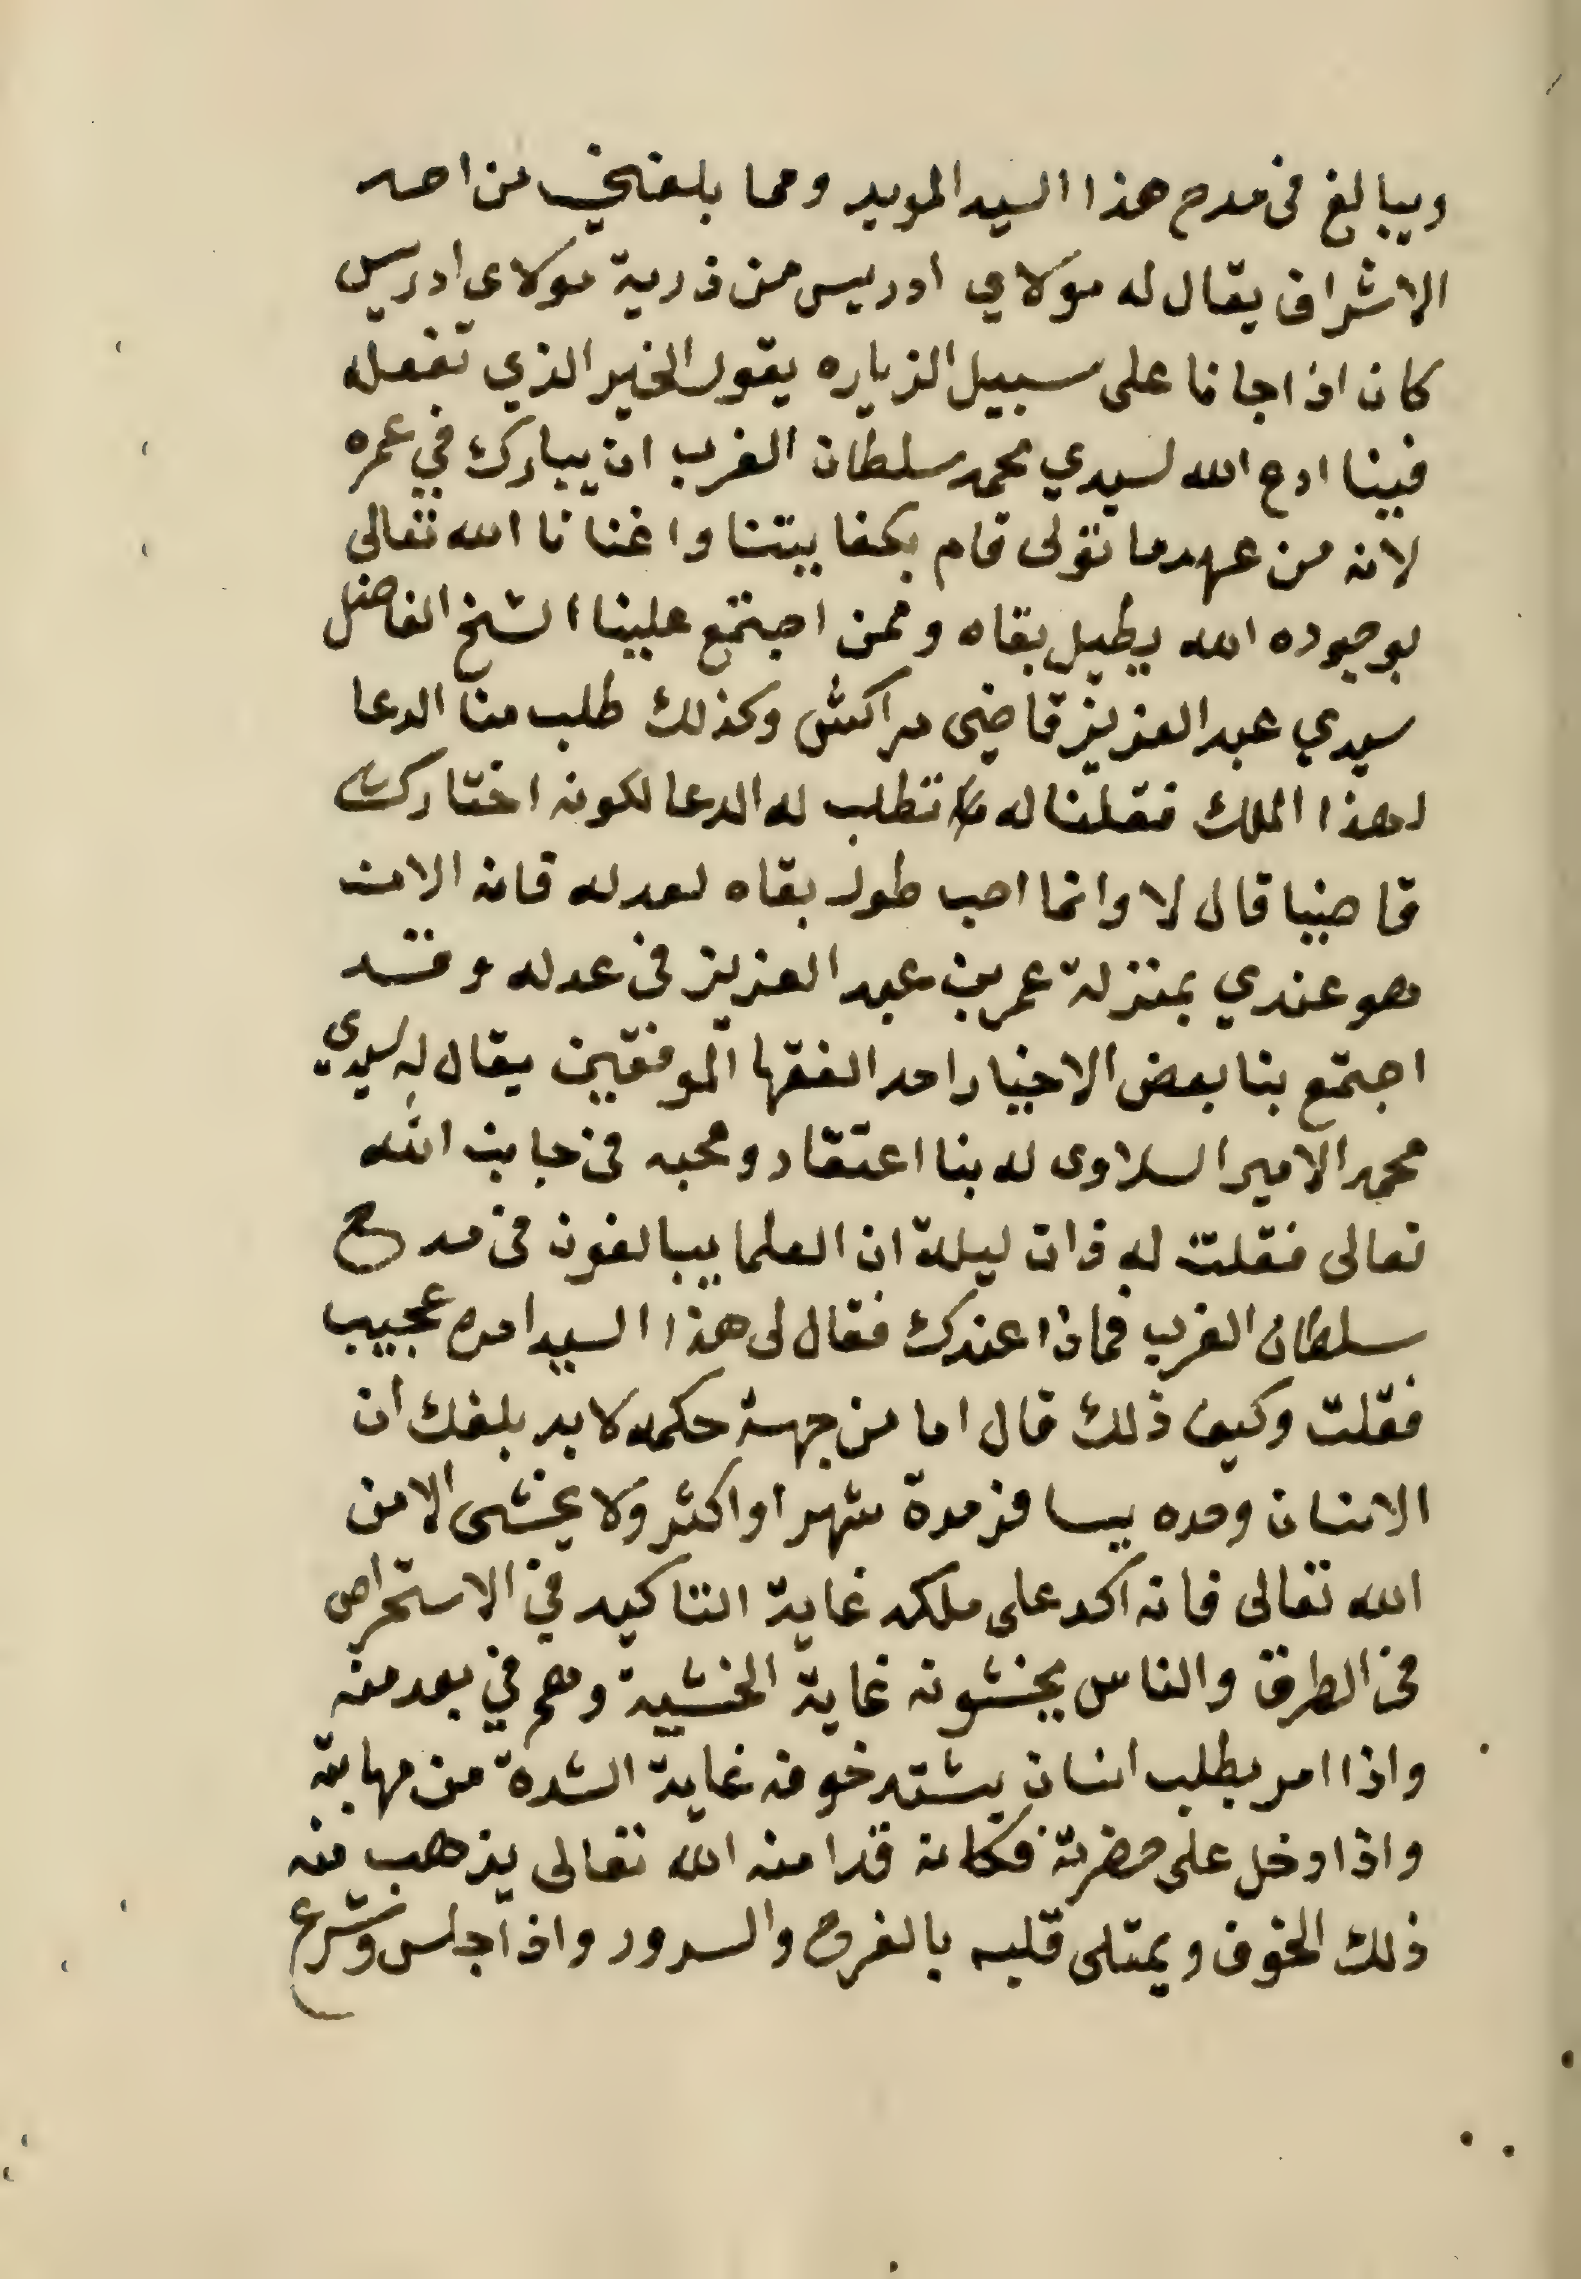 ويبالغ فى مدح هذا السيد المويد ومما بلغني من احد
الاشراف يقال له مولاي ادريس من ذرية مولاي ادريس
كان اذا جانا على سبيل الزياره يقول الخير الذي تفعله
فينا ادع الله لسيدي محمد سلطان الغرب ان يبارك في عمره
لانه من عهد ما تولى قام بكفايتنا واغنانا الله تعالى
بوجوده الله يطيل بقاه وممن اجتمع علينا الشيخ الفاضل
سيدي عبد العزيز قاضى مراكش وكذلك طلب منا الدعا
لهذا الملك فقلنا له تطلب له الدعا لكونه اختارك
قاضيا قال لا وانما احب طول بقاه لعدله فانه الان
هو عندي بمنزلة عمر بن عبد العزيز فى عدله وقد
اجتمع بنا بعض الاخيار احد الفقها الموفقين يقال له سيدي
محمد الامير السلاوى له بنا اعتقاد ومحبه فى جانب الله
تعالى فقلت له ذات ليلة ان العلما يبالغون فى مدح
سلطان الغرب فماذا عندك فقال لى هذا السيد امره عجيب
فقلت وكيف ذلك قال اما من جهة حكمه لا بد بلغك ان
الانسان وحده يسافر مدة شهر او اكثر ولا يخشى الا من
الله تعالى فانه اكد على ملكه غاية التاكيد في الاستحراص
فى الطرق والناس يخشونه غاية الخشية وهم في بعد منه
واذا امر بطلب انسان يشتد خوفه غاية الشدة من مهابته
واذا دخل على حضرته فكانه قد امنه الله تعالى يذهب منه
ذلك الخوف ويمتلى قلبه بالفرح والسرور واذا جلس وشرع